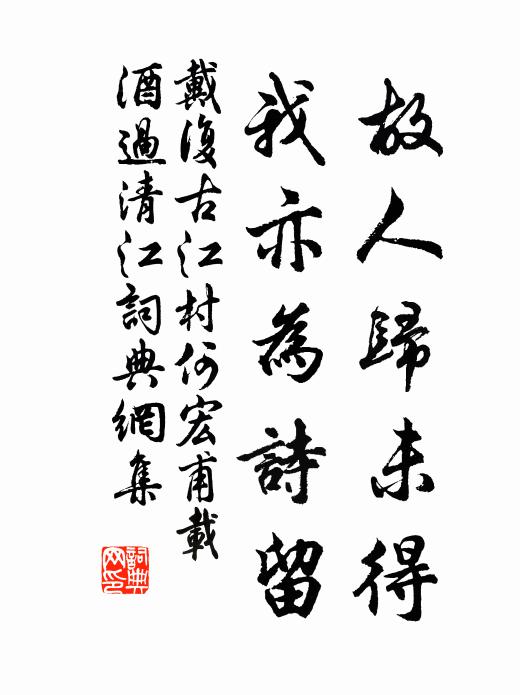 故人歸未得
我亦為詩留
戴復古江村何宏甫載
酒過清江詞典網集
詞典
网印